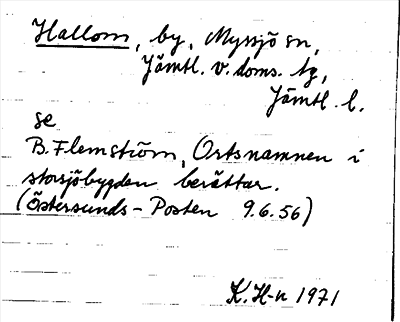 Hallom, by, Myssjö sn,
Jämtl. v. doms. tg,
Jämtl. l.
se
B. Flemström, Ortsnamnen i
storsjöbygden berättar.
(Östersunds-Posten 9.6.56)
K. H-n 1971